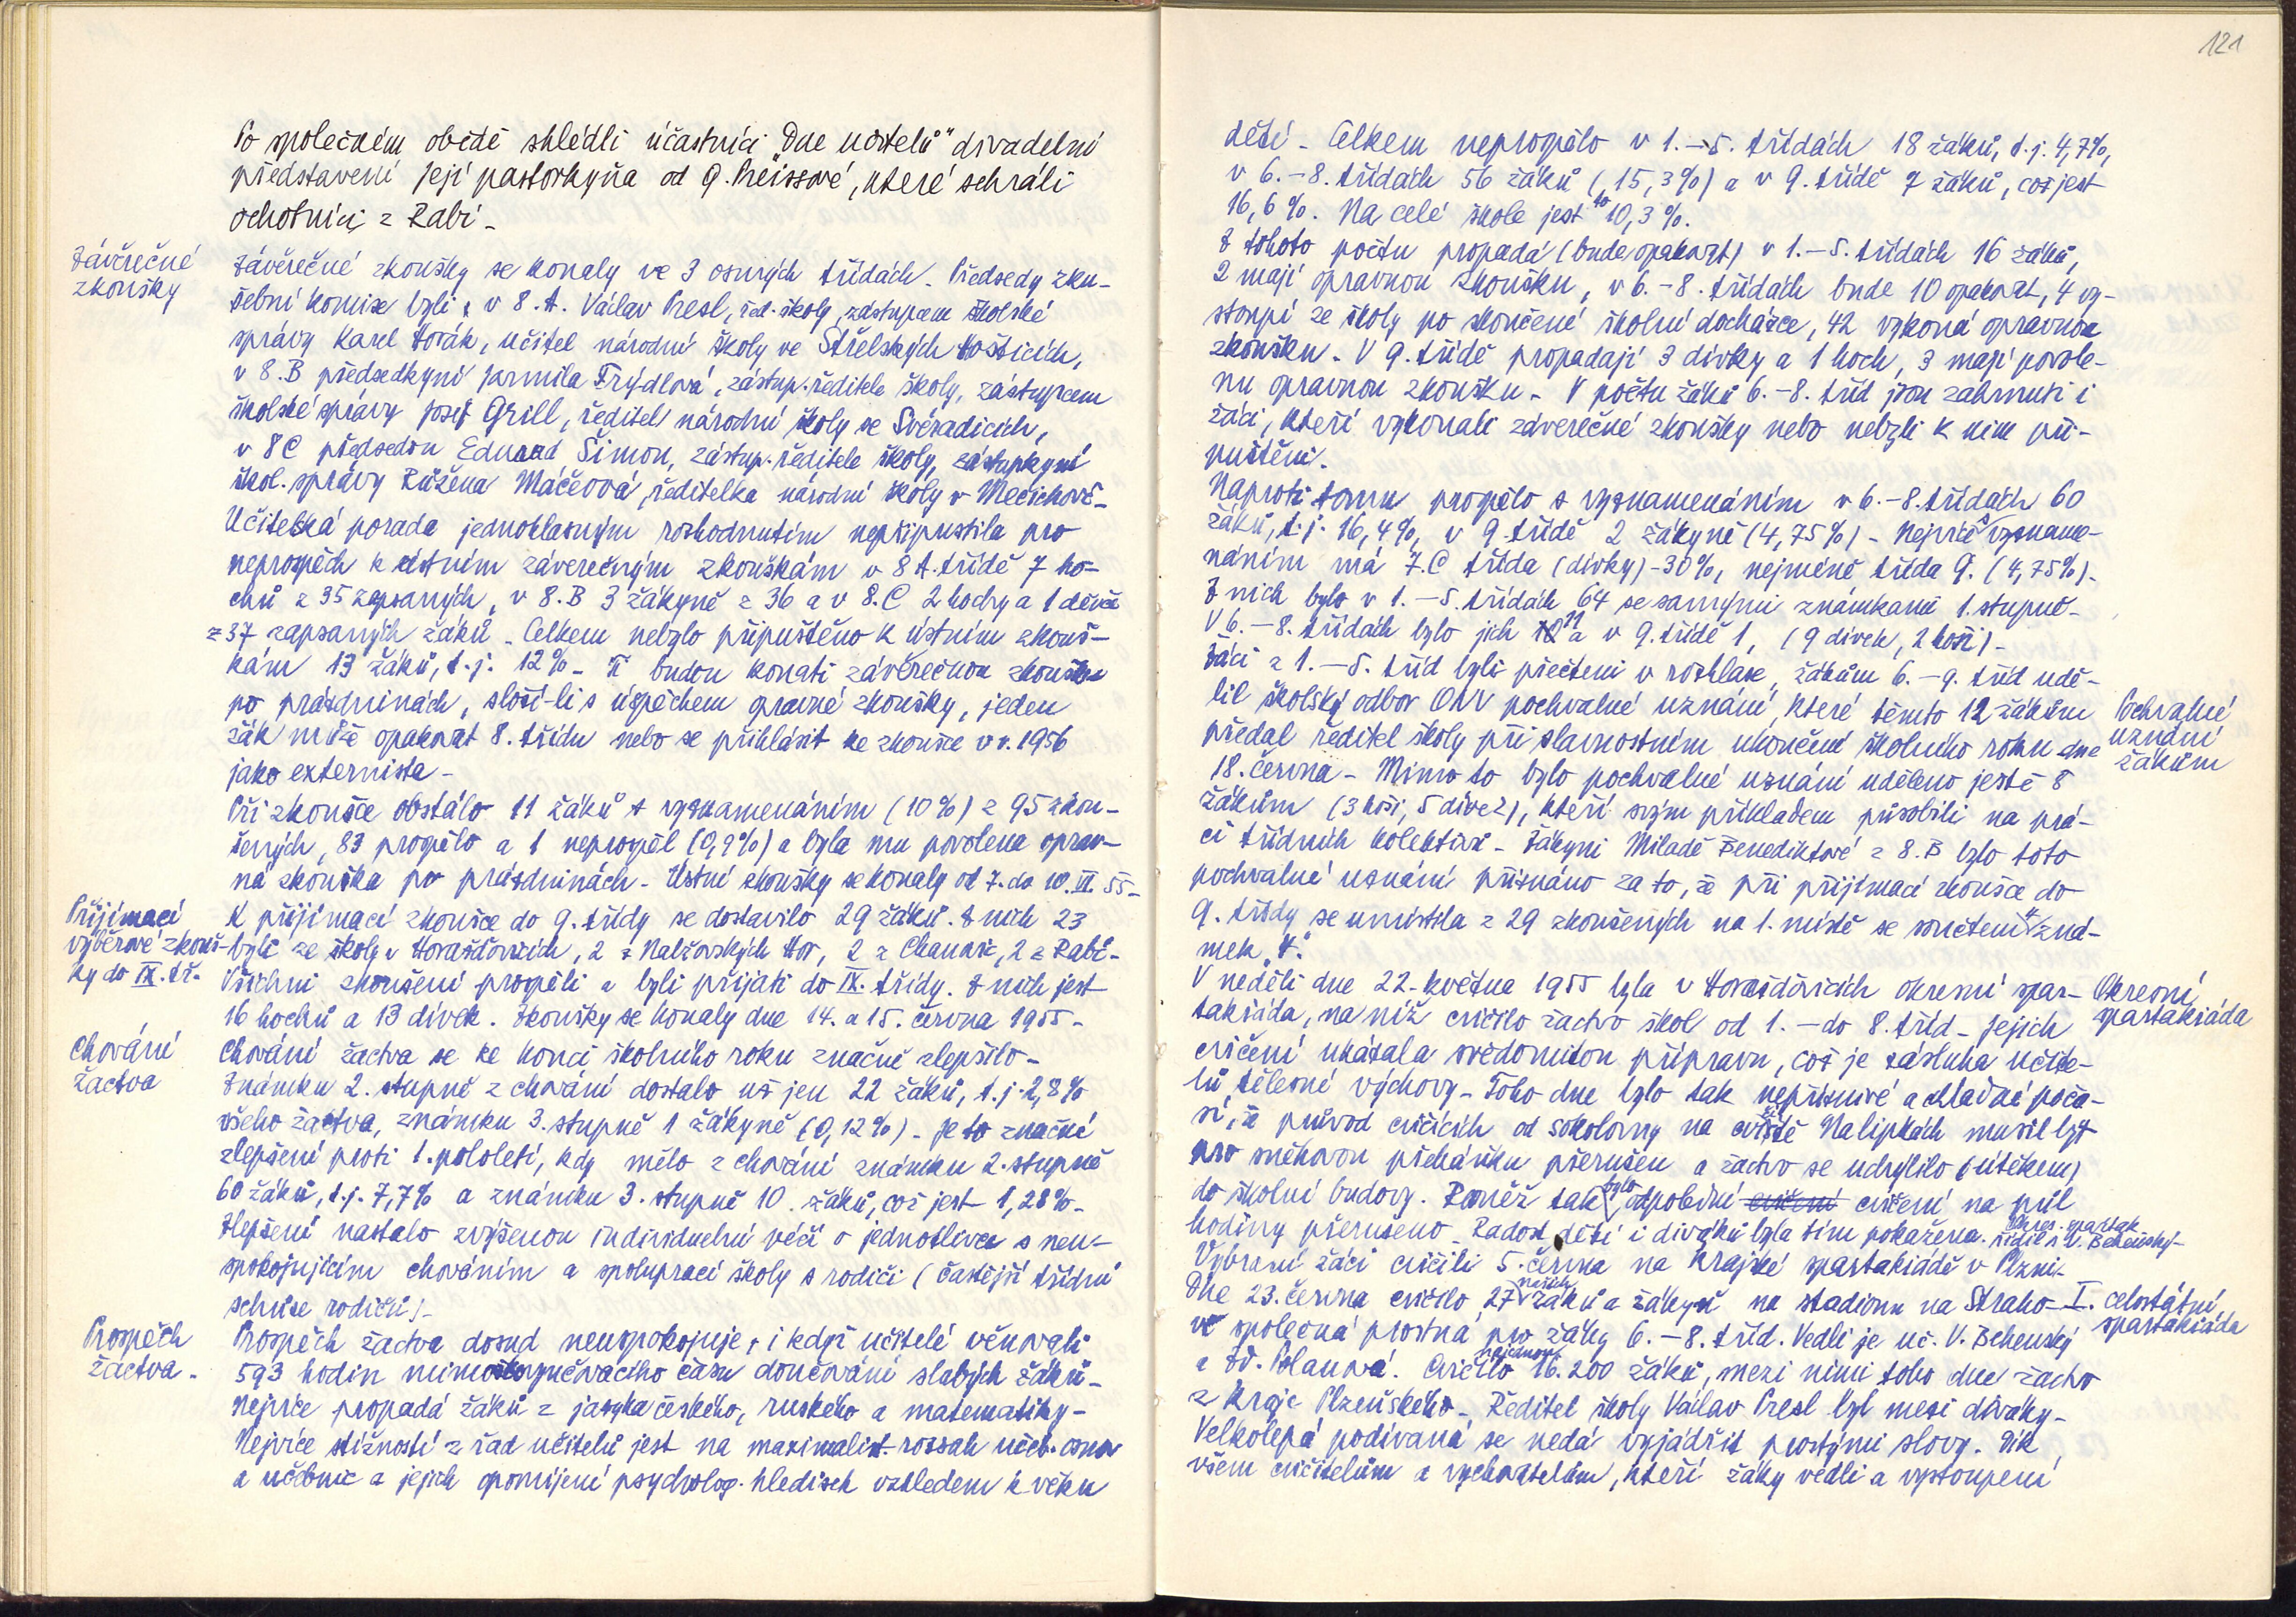 Po společném obědě shlédli účastníci „Dne učitelů" divadelní
představení Její pastorkyňa od G. Preissové, které sehráli
ochotníci z Rabí.
Závěrečné
zkoušky
Závěrečné zkoušky se konaly ve 3 osmých třídách. Předsedy zku-
šební komise byli v 8. A. Václav Presl, řed. školy, zástupcem školské
správy Karel Horák, učitel národní školy ve Střelských Hošticích,
v 8. B předsedkyní Jarmila Frýdlová, zástup. ředitele školy, zástupcem
školské správy Josef Grill, ředitel národní školy ve Svéradicích,
v 8 C předsedou Eduard Šimon, zástup. ředitele školy, zástupkyní
škol. správy Růžena Máčeová, ředitelka národní školy v Mečichově.
Učitelská porada jednohlasným rozhodnutím nepřipustila pro
neprospěch k ústním záverečným zkouškám v 8 A. třídě 7 ho-
chů z 35 zapsaných, v 8. B 3 žákyně z 36 a v 8. C 2 hochy a 1 děvče
z 37 zapsaných žáků. Celkem nebylo připuštěno k ústním zkouš-
kám 13 žáků, t. j. 12%. Ti budou konati závěrečnou zkoušku
po prázdninách, složí-li s úspěchem opravné zkoušky, jeden
žák může opakovat 8. třídu nebo se přihlásit ke zkoušce v r. 1956
jako externista.
Při zkoušce obstálo 11 žáků s vyznamenáním (10%) z 95 zkou-
šených, 83 prospělo a 1 neprospěl (0,9%) a byla mu povolena oprav-
ná zkouška po prázdninách. Ústní zkoušky se konaly od 7. do 10. VI. 55.
Přijímací
výběrové zkouš-
ky do IX. tř.
K přijímací zkoušce do 9. třídy se dostavilo 29 žáků. Z nich 23
byli ze školy v Horažďovicích, 2 z Nalžovských Hor, 2 z Chanovic, 2 z Rabí.
Všichni zkoušení prospěli a byli přijati do IX. třídy. Z nich jest
16 hochů a 13 dívek. Zkoušky se konaly dne 14. a 15. června 1955.
Chování
žactva
Chování žactva se ke konci školního roku značně zlepšilo.
Známku 2. stupně z chování dostalo už jen 22 žáků, t. j. 2,8%
všeho žactva, známku 3. stupně 1 žákyně (0,12%). Je to značné
zlepšení proti 1. pololetí, kdy mělo z chování známku 2. stupně
60 žáků, t. j. 7,7% a známku 3. stupně 10. žáků, což jest 1,28%.
Zlepšení nastalo zvýšenou individuelní péčí o jednotlivce s neu-
spokojujícím chováním a spoluprací školy s rodiči (častější třídní
schůze rodičů).
Prospěch
žactva.
Prospěch žactva dosud neuspokojuje, i když učitelé věnovali
593 hodin mimovyučovacího času doučování slabých žáků.
Nejvíce propadá žáků z jazyka českého, ruského a matematiky.
Nejvíce stížností z řad učitelů jest na maximalist. rozsah učeb. osnov
a učebnic a jejich opomíjení psycholog. hledisek vzhledem k věku
121
dětí. Celkem neprospělo v 1.–5. třídách 18 žáků, t. j. 4,7%,
v 6.–8. třídách 56 žáků (15,3%) a v 9. třídě 7 žáků, což jest
16,6%. Na celé škole jest to 10,3%.
Z tohoto počtu propadá (bude opakovat) v 1.–5. třídách 16 žáků,
2 mají opravnou zkoušku, v 6.–8. třídách bude 10 opakovat, 4 vy-
stoupí ze školy po skončené školní docházce, 42 vykoná opravnou
zkoušku. V 9. třídě propadají 3 dívky a 1 hoch, 3 mají povole-
nu opravnou zkoušku. V počtu žáků 6.–8. tříd jsou zahrnuti i
žáci, kteří vykonali záverečné zkoušky nebo nebyli k nim při-
puštěni.
Naproti tomu prospělo s vyznamenáním v 6.–8. třídách 60
žáků, t. j. 16,4%, v 9. třídě 2 žákyně (4,75%). Nejvíce s vyzname-
náním má 7. C třída (dívky) - 30%, nejméně třída 9. (4,75%).
Z nich bylo v 1.–5. třídách 64 se samými známkami 1. stupně.
V 6.–8. třídách bylo jich 11 a v 9. třídě 1, (9 dívek, 2 hoši).
Žáci z 1.–5. tříd byli přečteni v rozhlase, žákům 6.–9. tříd udě-
lil školský odbor ONV pochvalné uznání, které těmto 12 žákům
předal ředitel školy při slavnostním ukončení školního roku dne
18. června. Mimo to bylo pochvalné uznání uděleno ještě 8
žákům (3 hoši, 5 dívek), kteří svým příkladem působili na prá-
ci třídních kolektivů. Žákyni Miladě Benediktové z 8. B bylo toto
pochvalné uznání přiznáno za to, že při přijímací zkoušce do
9. třídy se umístila z 29 zkoušených na 1. místě se součtem zná-
mek „4."
Pochvalné
uznání
žákům
V neděli dne 22. května 1955 byla v Horažďovicích okresní spar-
takiáda, na níž cvičilo žactvo škol od 1. – do 8. tříd. Jejich
cvičení ukázala svědomitou přípravu, což je zásluha učite-
lů tělesné výchovy. Toho dne bylo tak nepříznivé a chladné poča-
sí, že průvod cvičících od sokolovny na cviště Na lipkách musil být
pro sněhovou přeháňku přerušen a žactvo se uchýlilo (útěkem)
do školní budovy. Rovněž tak bylo odpolední cvičení cvičení na půl
hodiny přerušeno. Radost dětí i diváků byla tím pokažena. Okres. spartak.
řídil s. V. Behenský.
Okresní
spartakiáda
Vybraní žáci cvičili 5. června na krajské spartakiádě v Plzni.
Dne 23. června cvičilo 27 našich žáků a žákyň na stadionu na Straho-
vě společná prostná pro žáky 6.–8. tříd. Vedli je uč. V. Behenský
a Zd. Polanová. Cvičilo najednou 16.200 žáků, mezi nimi toho dne žactvo
z kraje Plzeňského. Ředitel školy Václav Presl byl mezi diváky.
Velkolepá podívaná se nedá vyjádřit prostými slovy. Dík
všem cvičitelům a vychovatelům, kteří žáky vedli a vystoupení
I. celostátní
spartakiáda